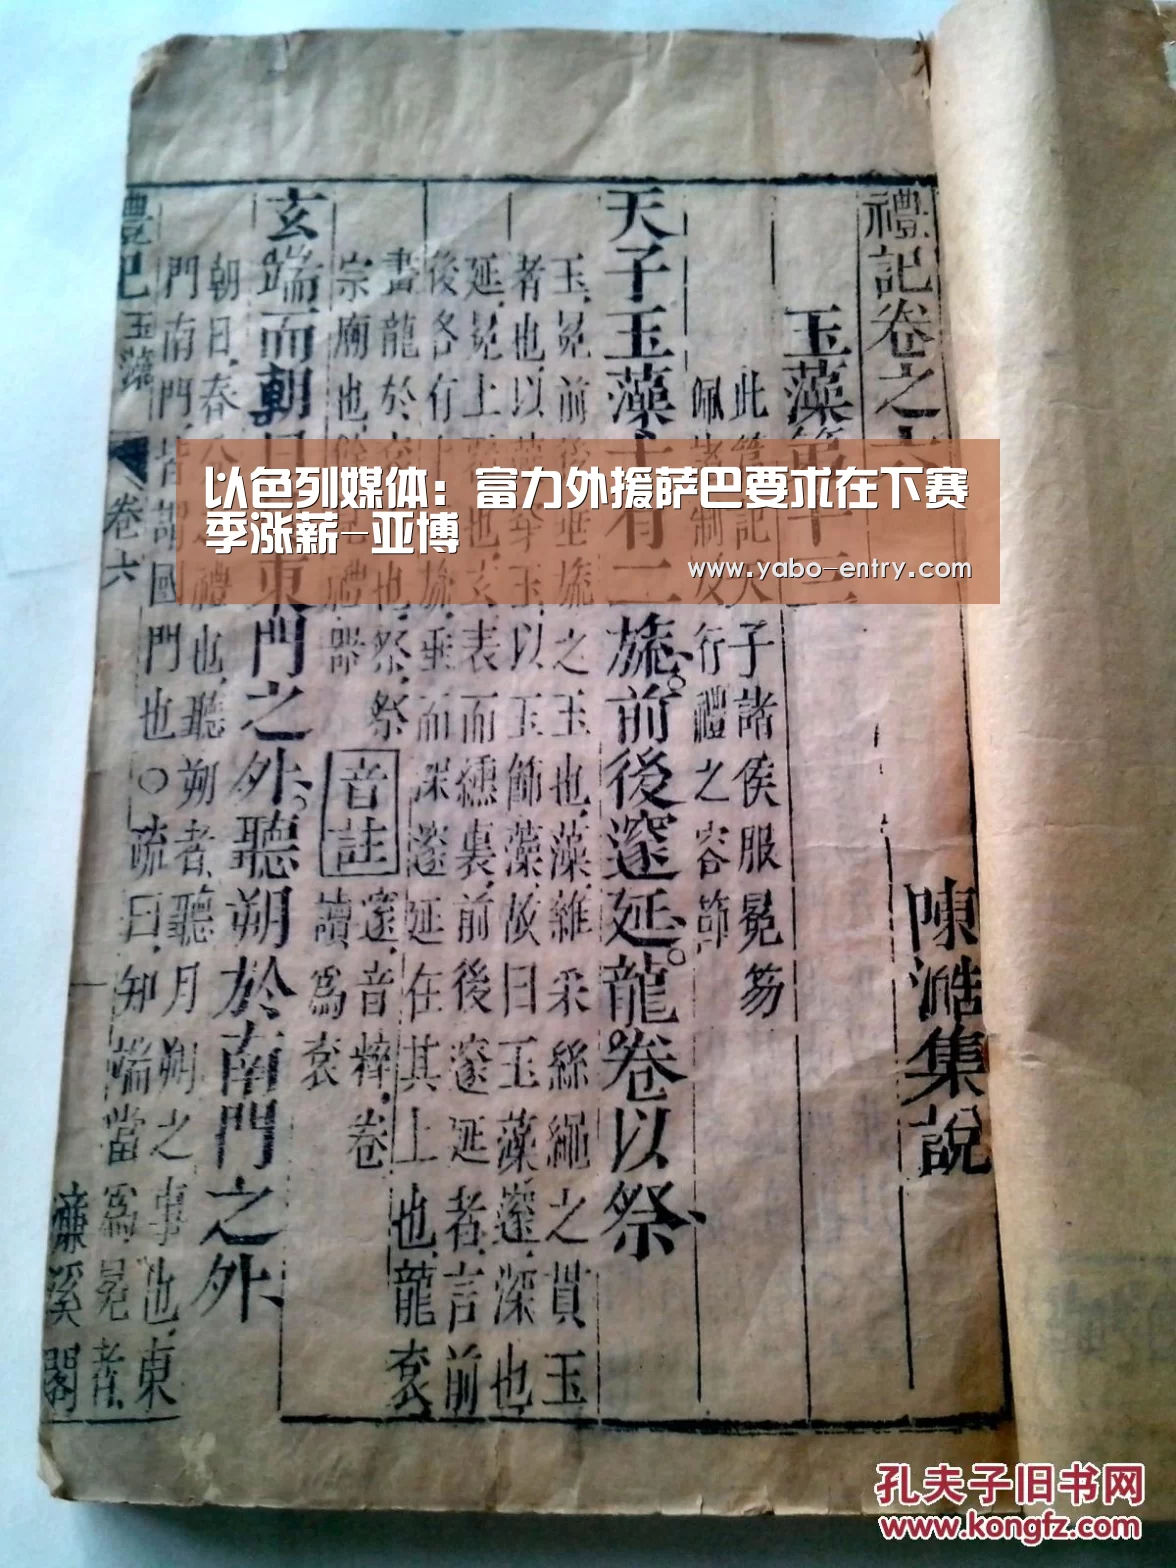 禮記卷之六
陳澔集說
玉藻第十三
此 記天子諸侯服冕笏
佩 制及行禮之容節
天子玉藻十有二旒前後邃延龍卷以祭
玉冕前後垂旒之玉也藻雜采絲繩之貫玉
者也以藻穿玉以玉飾藻故曰玉藻邃深也
延冕上 也玄表而纁裏前後邃延者言前
後各有 旒垂而深邃延在其上也龍袞
畫龍於 祭
宗廟也 禮器
音註 邃音粹卷
讀爲袞
玄端而朝日於東門之外聽朔於南門之外
朝日春 禮也聽朔者聽月朔之事也東
門南門皆謂國門也○疏曰知端當爲冕者
禮記玉藻 卷六 濂溪閣
以色列媒体：富力外援萨巴要求在下赛
季涨薪-亚博
www.yabo-entry.com
孔夫子旧书网
www.kongfz.com